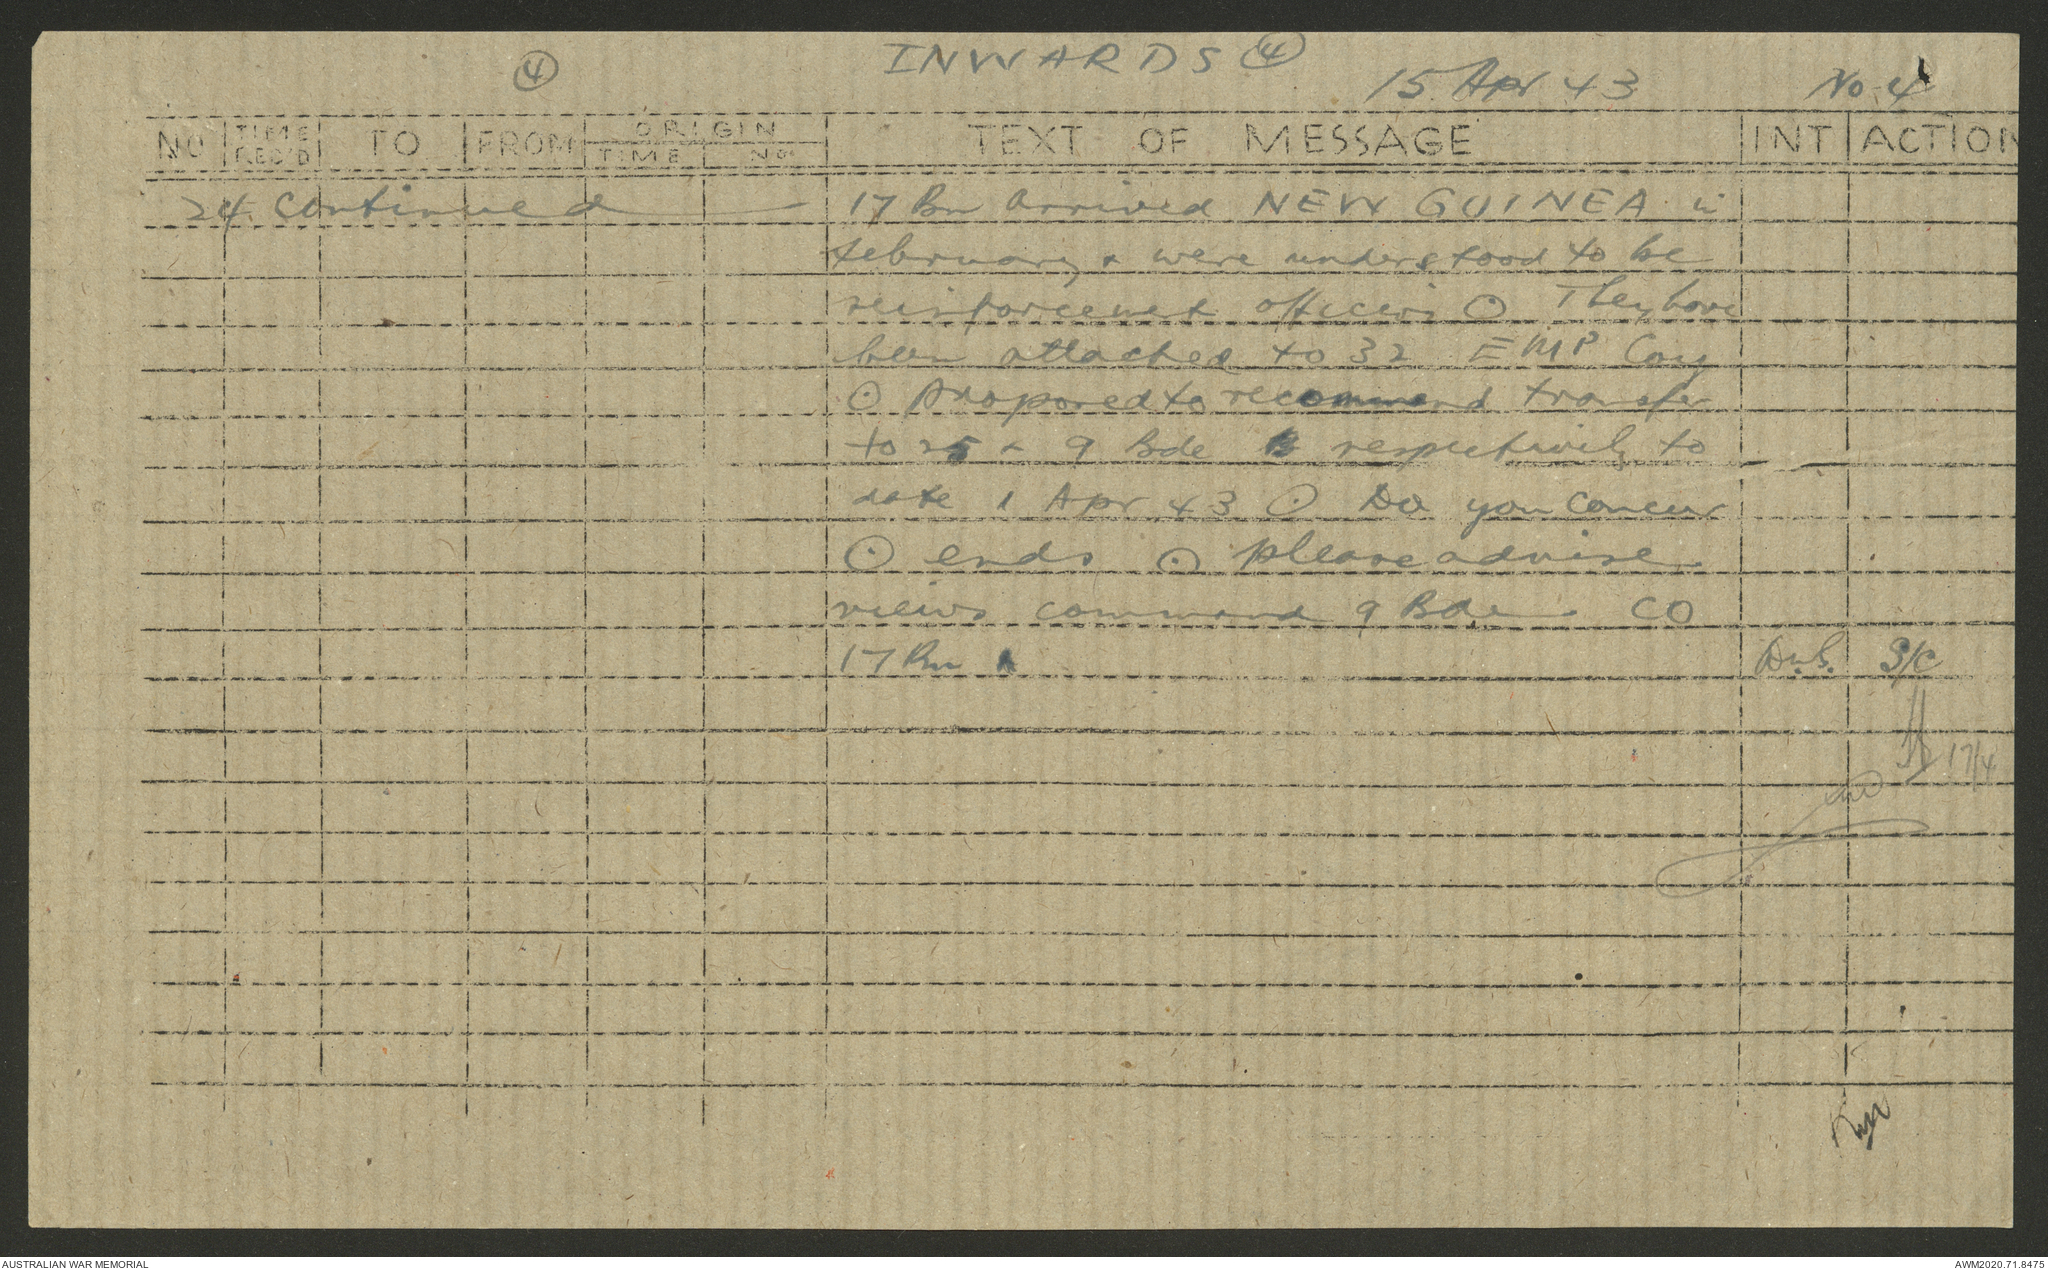 ④ INWARDS ④
15 Apr 43 No 4
NO TIME REC'D TO FROM ORIGIN TIME NO TEXT OF MESSAGE INT ACTION
24 continued — 17 Bn arrived NEW GUINEA in
february & were understood to be
reinforcement officers ⊙ They have
been attached to 32 EMP Coy
⊙ Proposed to recommend transfer
to 25 & 9 Bde respectively to
date 1 Apr 43 ⊙ Do you concur
⊙ ends ⊙ please advise
views command 9 Bde CO
17 Bn S/C
17/4
AUSTRALIAN WAR MEMORIAL AWM2020.71.8475